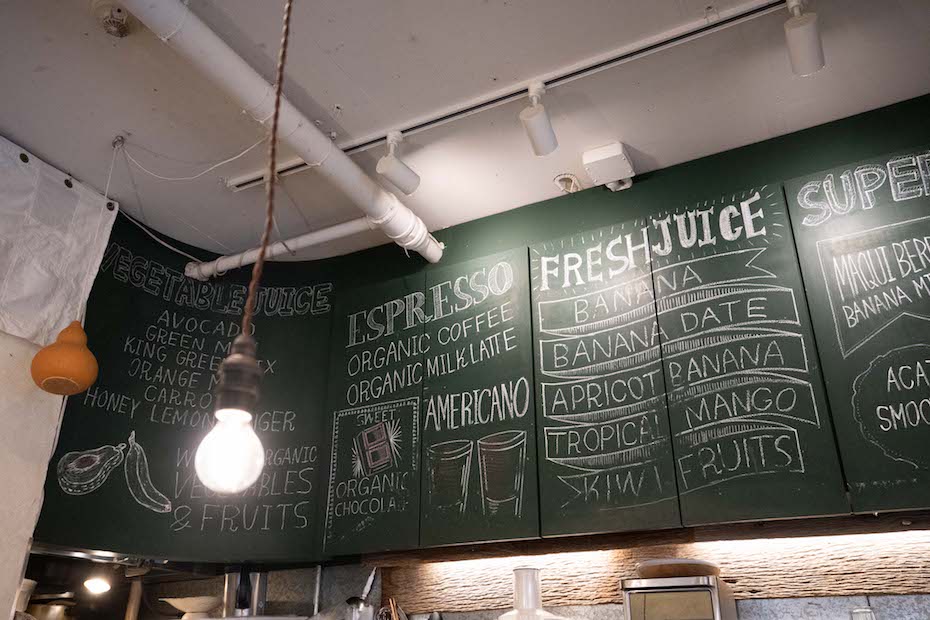 VEGETABLE JUICE
AVOCADO
GREEN
KING GREEN
ORANGE
CARROT
HONEY LEMON
ORGANIC
VEGETABLES
& FRUITS
ESPRESSO
ORGANIC COFFEE
ORGANIC MILK LATE
SWEET
ORGANIC
CHOCOLA
AMERICANO
FRESH JUICE
BANANA
BANANA DATE
APRICOT BANANA
TROPICAL MANGO
KIWI FRUITS
SUPER
MAQUI BER
BANANA
ACAI
SMOO